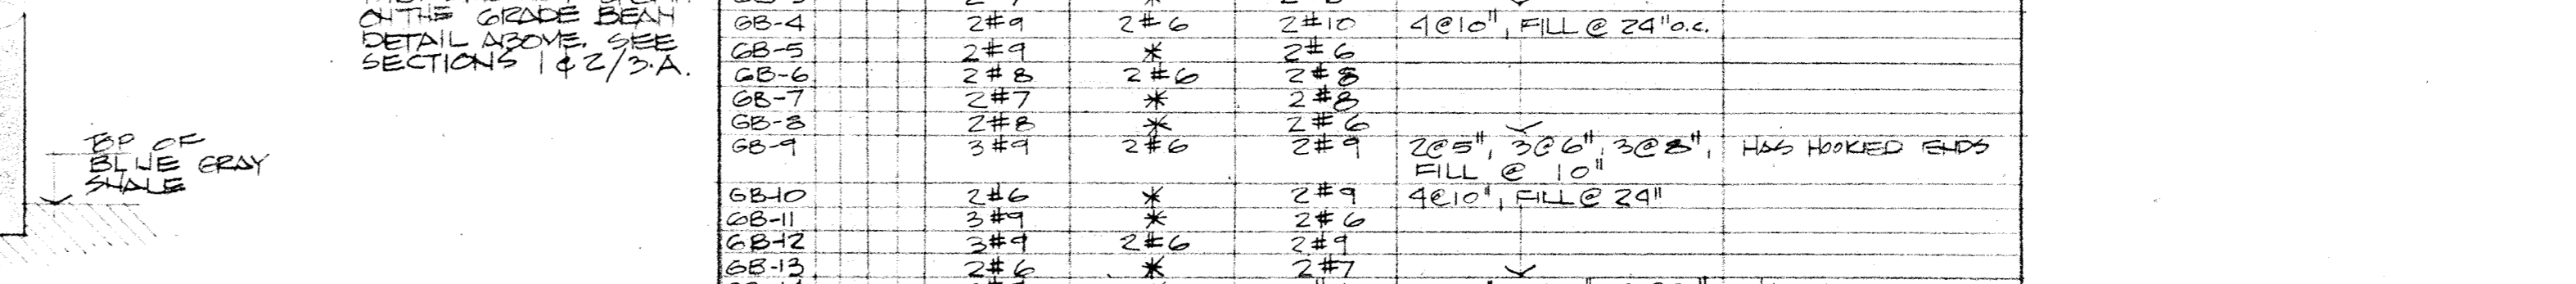 ON THE GRADE BEAM
DETAIL ABOVE. SEE
SECTIONS 1 & 2/3.A.
TOP OF
BLUE GRAY
SHALE
GB-4 2#9 2#6 2#10 4@10", FILL @ 24"o.c.
GB-5 2#9 * 2#6
GB-6 2#8 2#6 2#8
GB-7 2#7 * 2#8
GB-8 2#8 * 2#6
GB-9 3#9 2#6 2#9 2@5", 3@6", 3@8", HAS HOOKED ENDS
FILL @ 10"
GB-10 2#6 * 2#9 4@10", FILL @ 24"
GB-11 3#9 * 2#6
GB-12 3#9 2#6 2#9
GB-13 2#6 * 2#7